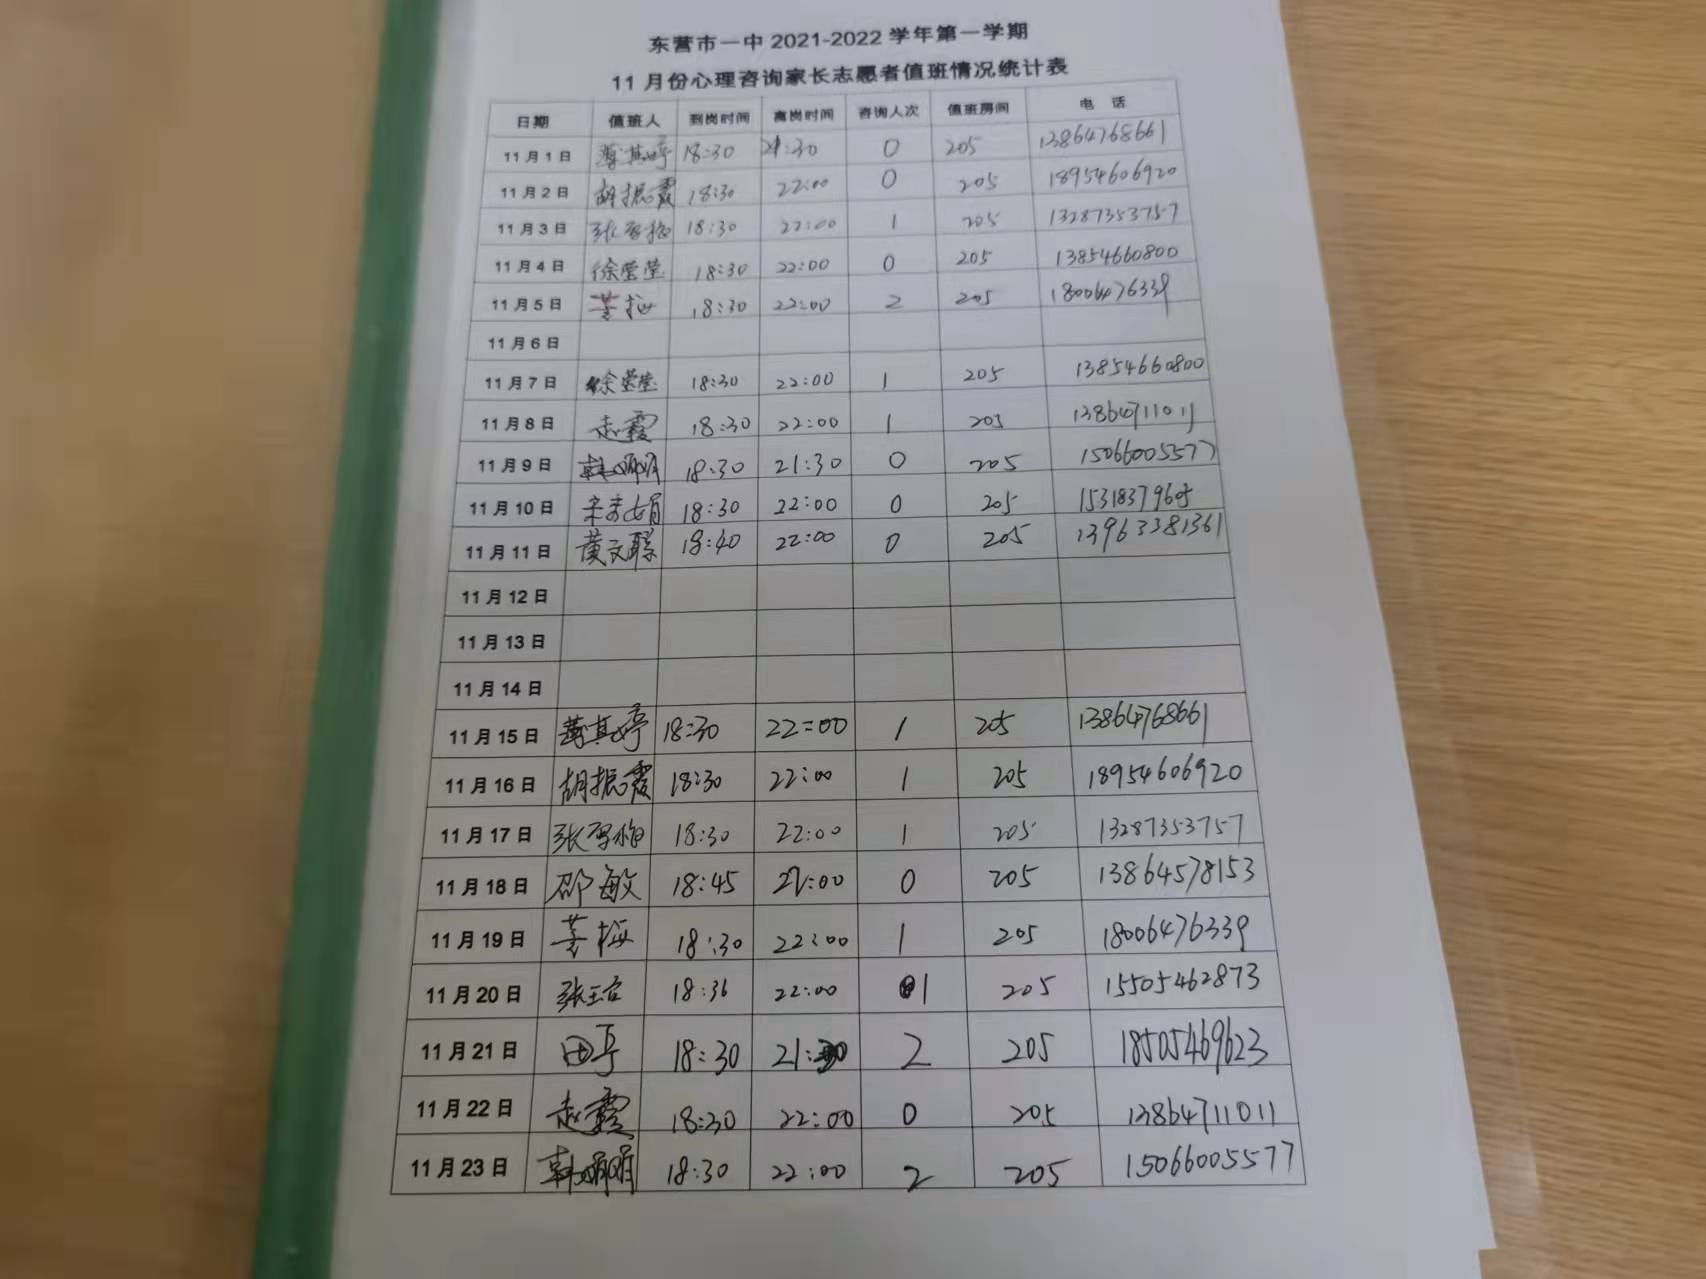 东营市一中 2021-2022 学年第一学期
11 月份心理咨询家长志愿者值班情况统计表
日期 值班人 到岗时间 离岗时间 咨询人次 值班房间 电 话
11 月 1 日 其婷 18:30 21:30 0 205 13864768661
11 月 2 日 胡振霞 18:30 22:00 0 205 18954606920
11 月 3 日 张 梅 18:30 22:00 1 205 13287353757
11 月 4 日 徐莹莹 18:30 22:00 0 205 13854660800
11 月 5 日 梅 18:30 22:00 2 205 18006476339
11 月 6 日
11 月 7 日 徐莹莹 18:30 22:00 1 205 13854660800
11 月 8 日 赵霞 18:30 22:00 1 205 13864711011
11 月 9 日 韩娟娟 18:30 21:30 0 205 15066005577
11 月 10 日 娟 18:30 22:00 0 205 15318379605
11 月 11 日 黄文联 18:40 22:00 0 205 13963381361
11 月 12 日
11 月 13 日
11 月 14 日
11 月 15 日 其婷 18:30 22:00 1 205 13864768661
11 月 16 日 胡振霞 18:30 22:00 1 205 18954606920
11 月 17 日 张 梅 18:30 22:00 1 205 13287353757
11 月 18 日 邵敏 18:45 22:00 0 205 13864578153
11 月 19 日 梅 18:30 22:00 1 205 18006476339
11 月 20 日 张 18:36 22:00 1 205 15505462873
11 月 21 日 田亭 18:30 21:30 2 205 18505469623
11 月 22 日 赵霞 18:30 22:00 0 205 13864711011
11 月 23 日 韩娟娟 18:30 22:00 2 205 15066005577